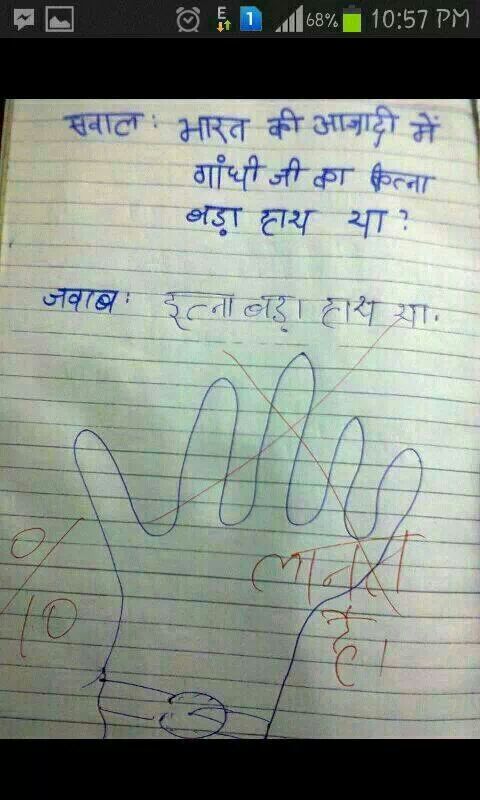 68% 10:57 PM
E 1
सवाल: भारत की आजादी में
गांधी जी का कितना
बड़ा हाथ था?
जवाब: इतना बड़ा हाथ था.
0/10
लानत
है।